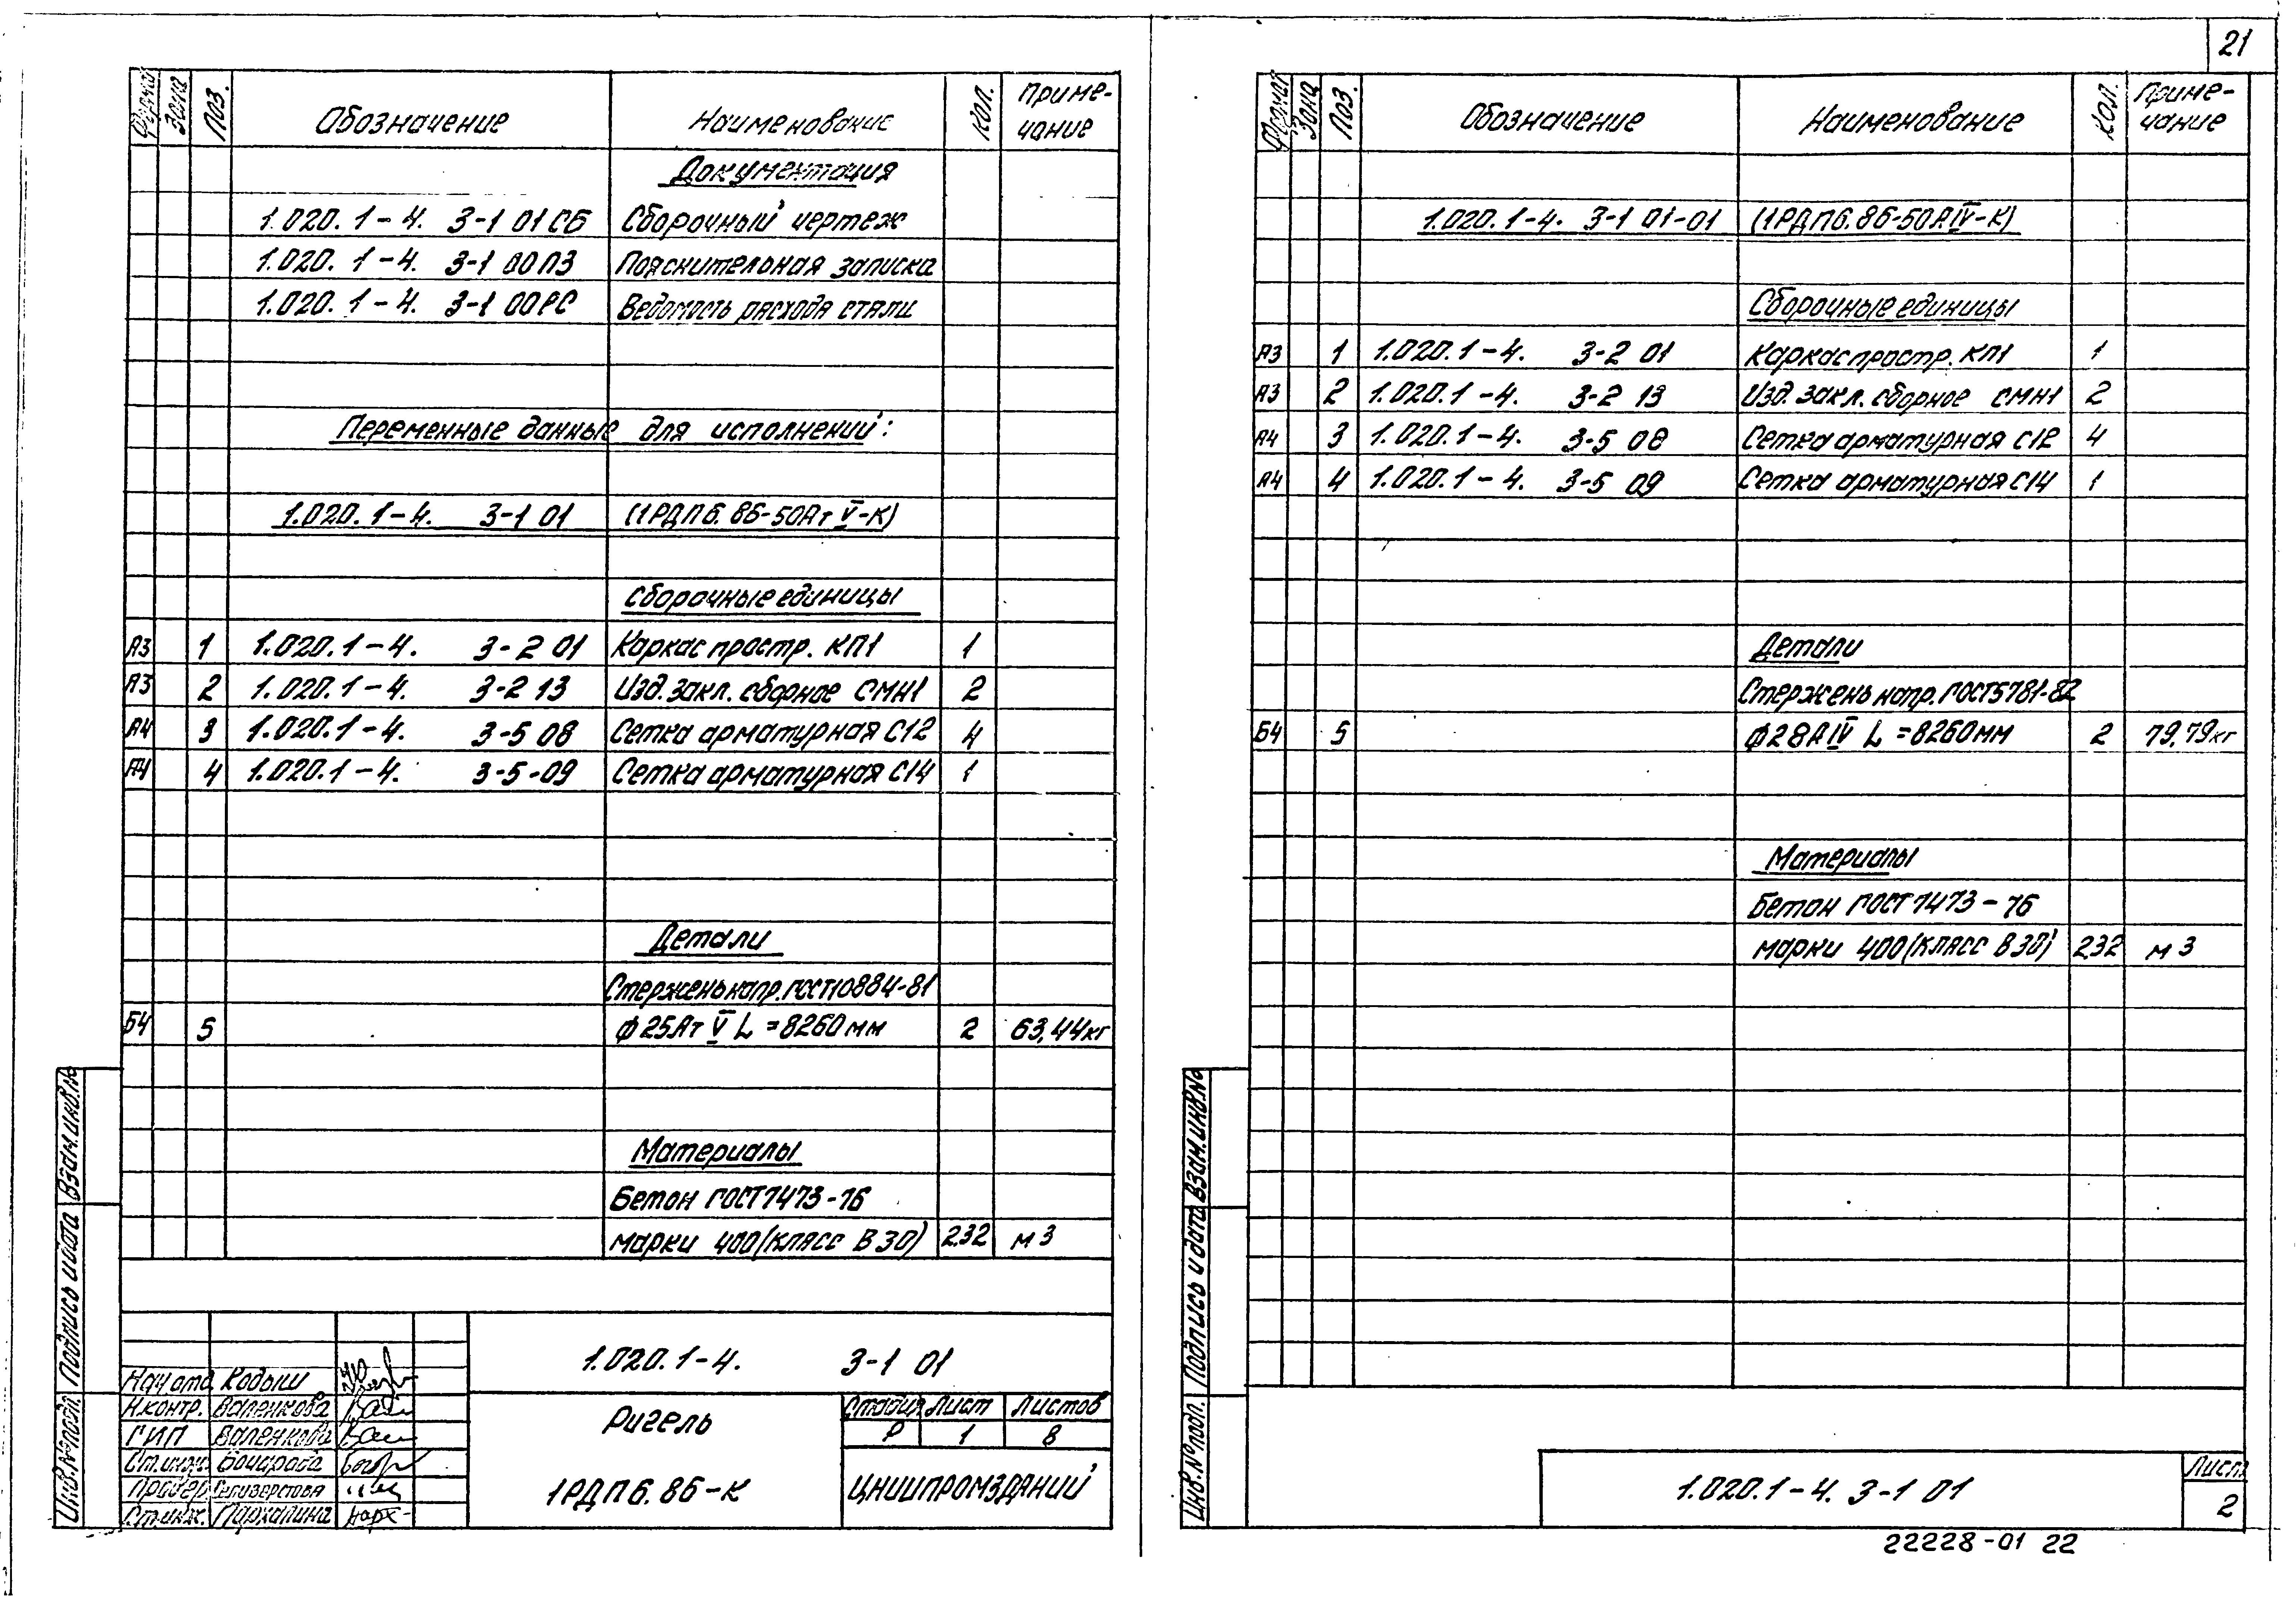 21
Формат Зона Поз. Обозначение Наименование Кол. Приме-
чание
Документация
1.020.1-4. 3-1 01СБ Сборочный чертеж
1.020.1-4. 3-1 00ПЗ Пояснительная записка
1.020.1-4. 3-1 00РС Ведомость расхода стали
Переменные данные для исполнений:
1.020.1-4. 3-1 01 (1РДП6.86-50АтV-К)
Сборочные единицы
А3 1 1.020.1-4. 3-2 01 Каркас простр. КП1 1
А3 2 1.020.1-4. 3-2 13 Изд. закл. сборное СМН1 2
А4 3 1.020.1-4. 3-5 08 Сетка арматурная С12 4
А4 4 1.020.1-4. 3-5-09 Сетка арматурная С14 1
Детали
Стержень напр. ГОСТ10884-81
Б4 5 ф25АтV L=8260мм 2 63,44кг
Материалы
Бетон ГОСТ7473-76
марки 400(класс В30) 2.32 м3
Инв.№подл. Подпись и дата Взам.инв.№
1.020.1-4. 3-1 01
Нач.отд. Кодыш
Н.контр. Валенкова
ГИП Валенкова
Ст.инж. Бочарова
Провер. Селиверстова
Ст.инж. Пархалина
Ригель
1РДП6.86-К
Стадия Лист Листов
Р 1 8
ЦНИИПРОМЗДАНИЙ
Формат Зона Поз. Обозначение Наименование Кол. Приме-
чание
1.020.1-4. 3-1 01-01 (1РДП6.86-50АIV-К)
Сборочные единицы
А3 1 1.020.1-4. 3-2 01 Каркас простр. КП1 1
А3 2 1.020.1-4. 3-2 13 Изд. закл. сборное СМН1 2
А4 3 1.020.1-4. 3-5 08 Сетка арматурная С12 4
А4 4 1.020.1-4. 3-5 09 Сетка арматурная С14 1
Детали
Стержень напр. ГОСТ5781-82
Б4 5 ф28АIV L=8260мм 2 79,79кг
Материалы
Бетон ГОСТ7473-76
марки 400(класс В30) 2.32 м3
Инв.№подл. Подпись и дата Взам.инв.№
1.020.1-4. 3-1 01
Лист
2
22228-01 22